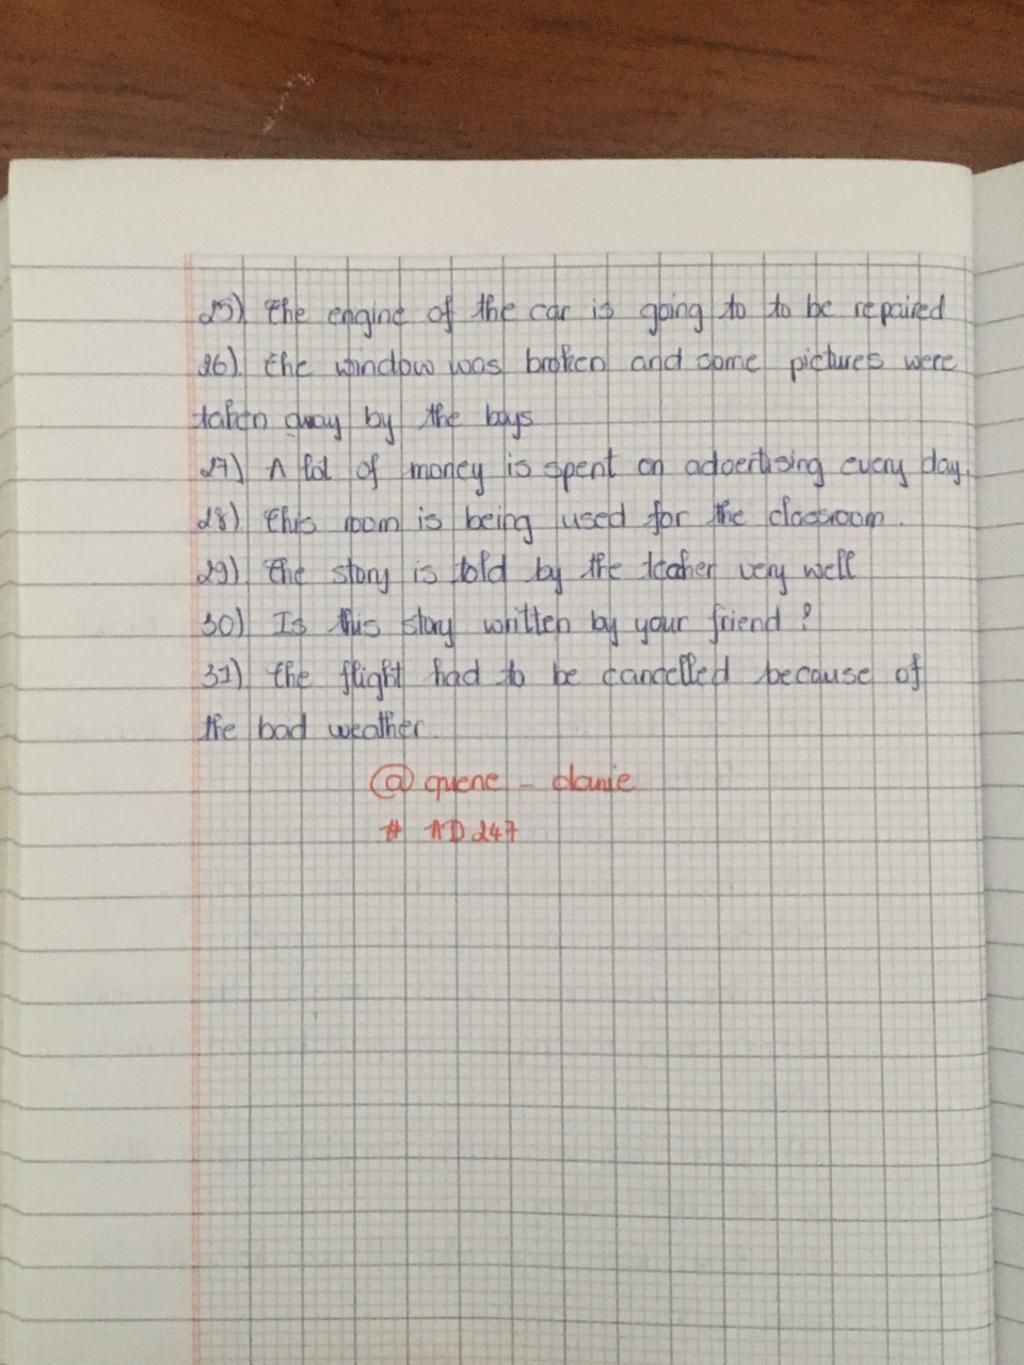 25) The engine of the car is going to to be repaired
26). The window was broken and some pictures were
taken away by the boys
27) A lot of money is spent on advertising every day.
28) This room is being used for the classroom.
29) The story is told by the teaher very well
30) Is this story written by your friend?
31) the flight had to be cancelled because of
the bad weather.
@ quene - danie
# AD247